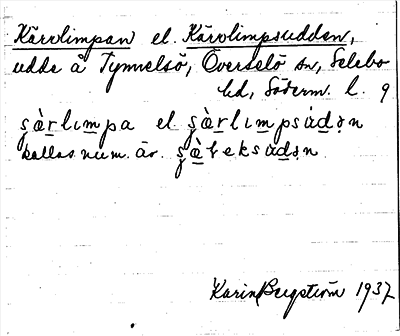 Kärvlimpan el. Kärvlimpsudden,
udde å Tynnelsö, Överselö sn, Selebo
hd, Söderm. l. 9
şὰrlımpa el şὰrlımpsúdən
kallas num. är. şὰɾeksúdən
Karin Bergström 1937